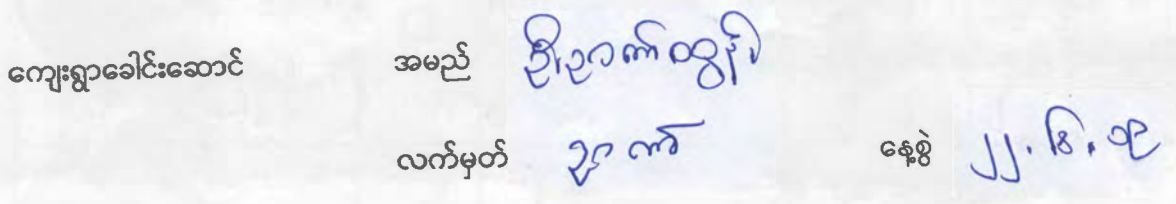 ကျေးရွာခေါင်းဆောင် အမည် ဦးဉာဏ်ထွန်း
လက်မှတ် ဉာဏ် နေ့စွဲ ၂၂.၆.၁၉